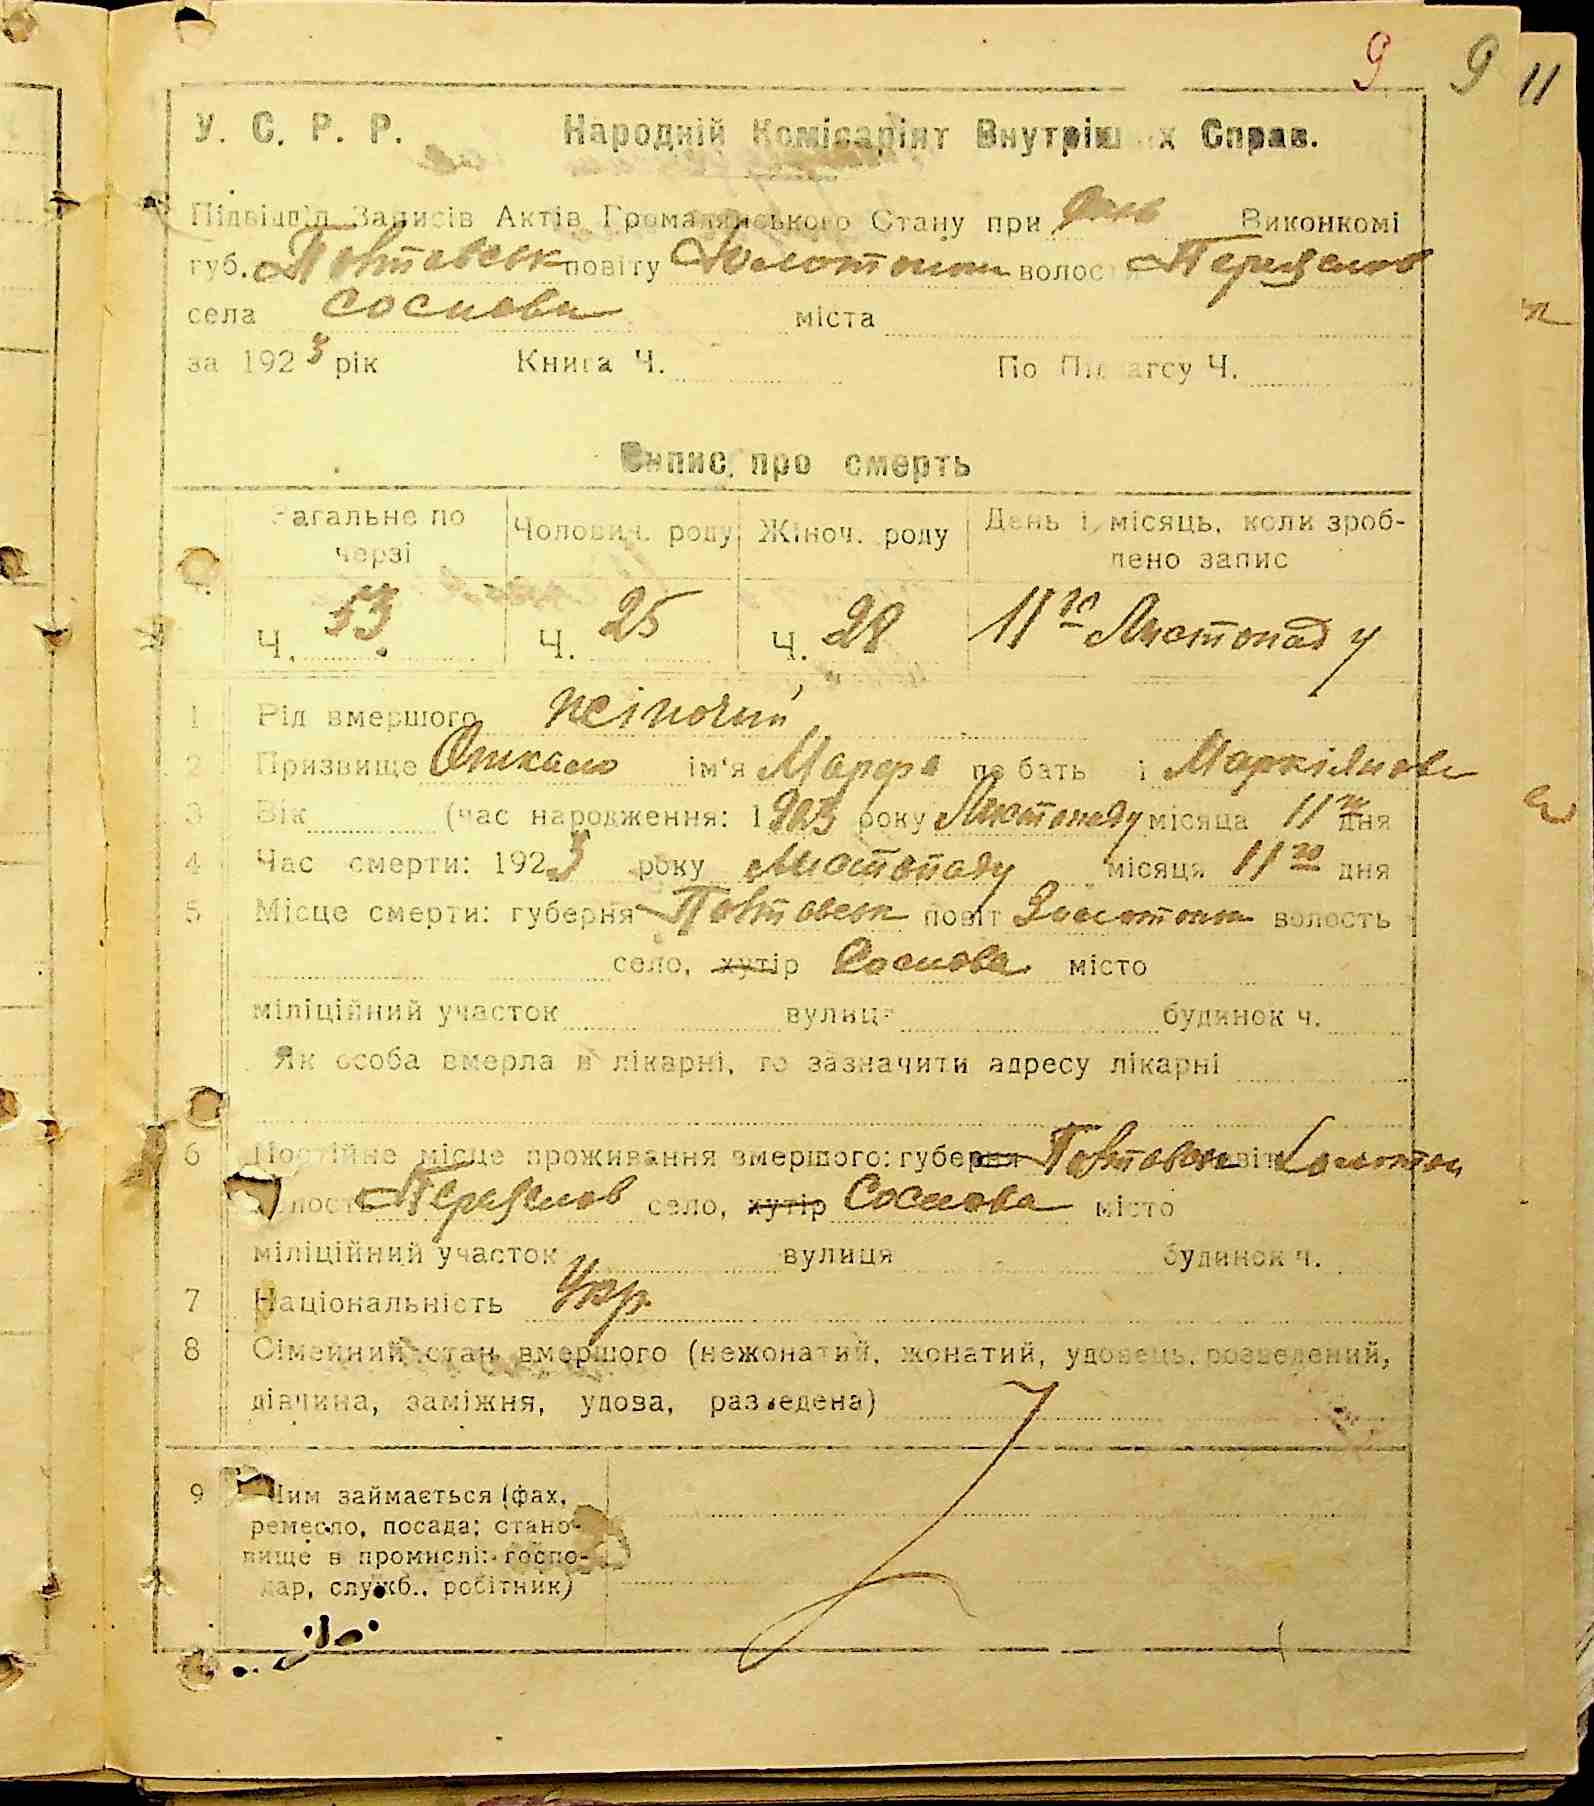 9 9 11
У. С. Р. Р. Народній Комісаріят Внутрішніх Справ.
Підвідділ Записів Актів Громадянського Стану при Виконкомі
губ. Полтавськ повіту Золотонош волости Переяслов
села Соснови міста
за 1923 рік Книга Ч. По Підзагсу Ч.
Випис про смерть
Загальне по черзі Чоловіч. роду Жіноч. роду День і місяць, коли зроблено запис
Ч. 53 Ч. 25 Ч. 28 11го Листопаду
1 Рід вмершого жіночий
2 Призвище ім'я по батькові Маркіянов
3 Вік (час народження: 1923 року Листопаду місяца 11го дня
4 Час смерти: 1923 року Листопаду місяця 11го дня
5 Місце смерти: губерня Полтавськ повіт Золотонош волость
село, хутір Соснова місто
міліційний участок вулиця будинок ч.
Як особа вмерла в лікарні, то зазначити адресу лікарні
6 Постійне місце проживання вмершого: губерня Полтавськ повіт Золотон
волость Переяслов село, хутір Соснова місто
міліційний участок вулиця будинок ч.
7 Національність Укр.
8 Сімейний стан вмершого (нежонатий, жонатий, удовець, розведений,
дівчина, заміжня, удова, разведена)
9 Чим займається (фах,
ремесло, посада; стано-
вище в промислі: госпо-
дар, служб., робітник)